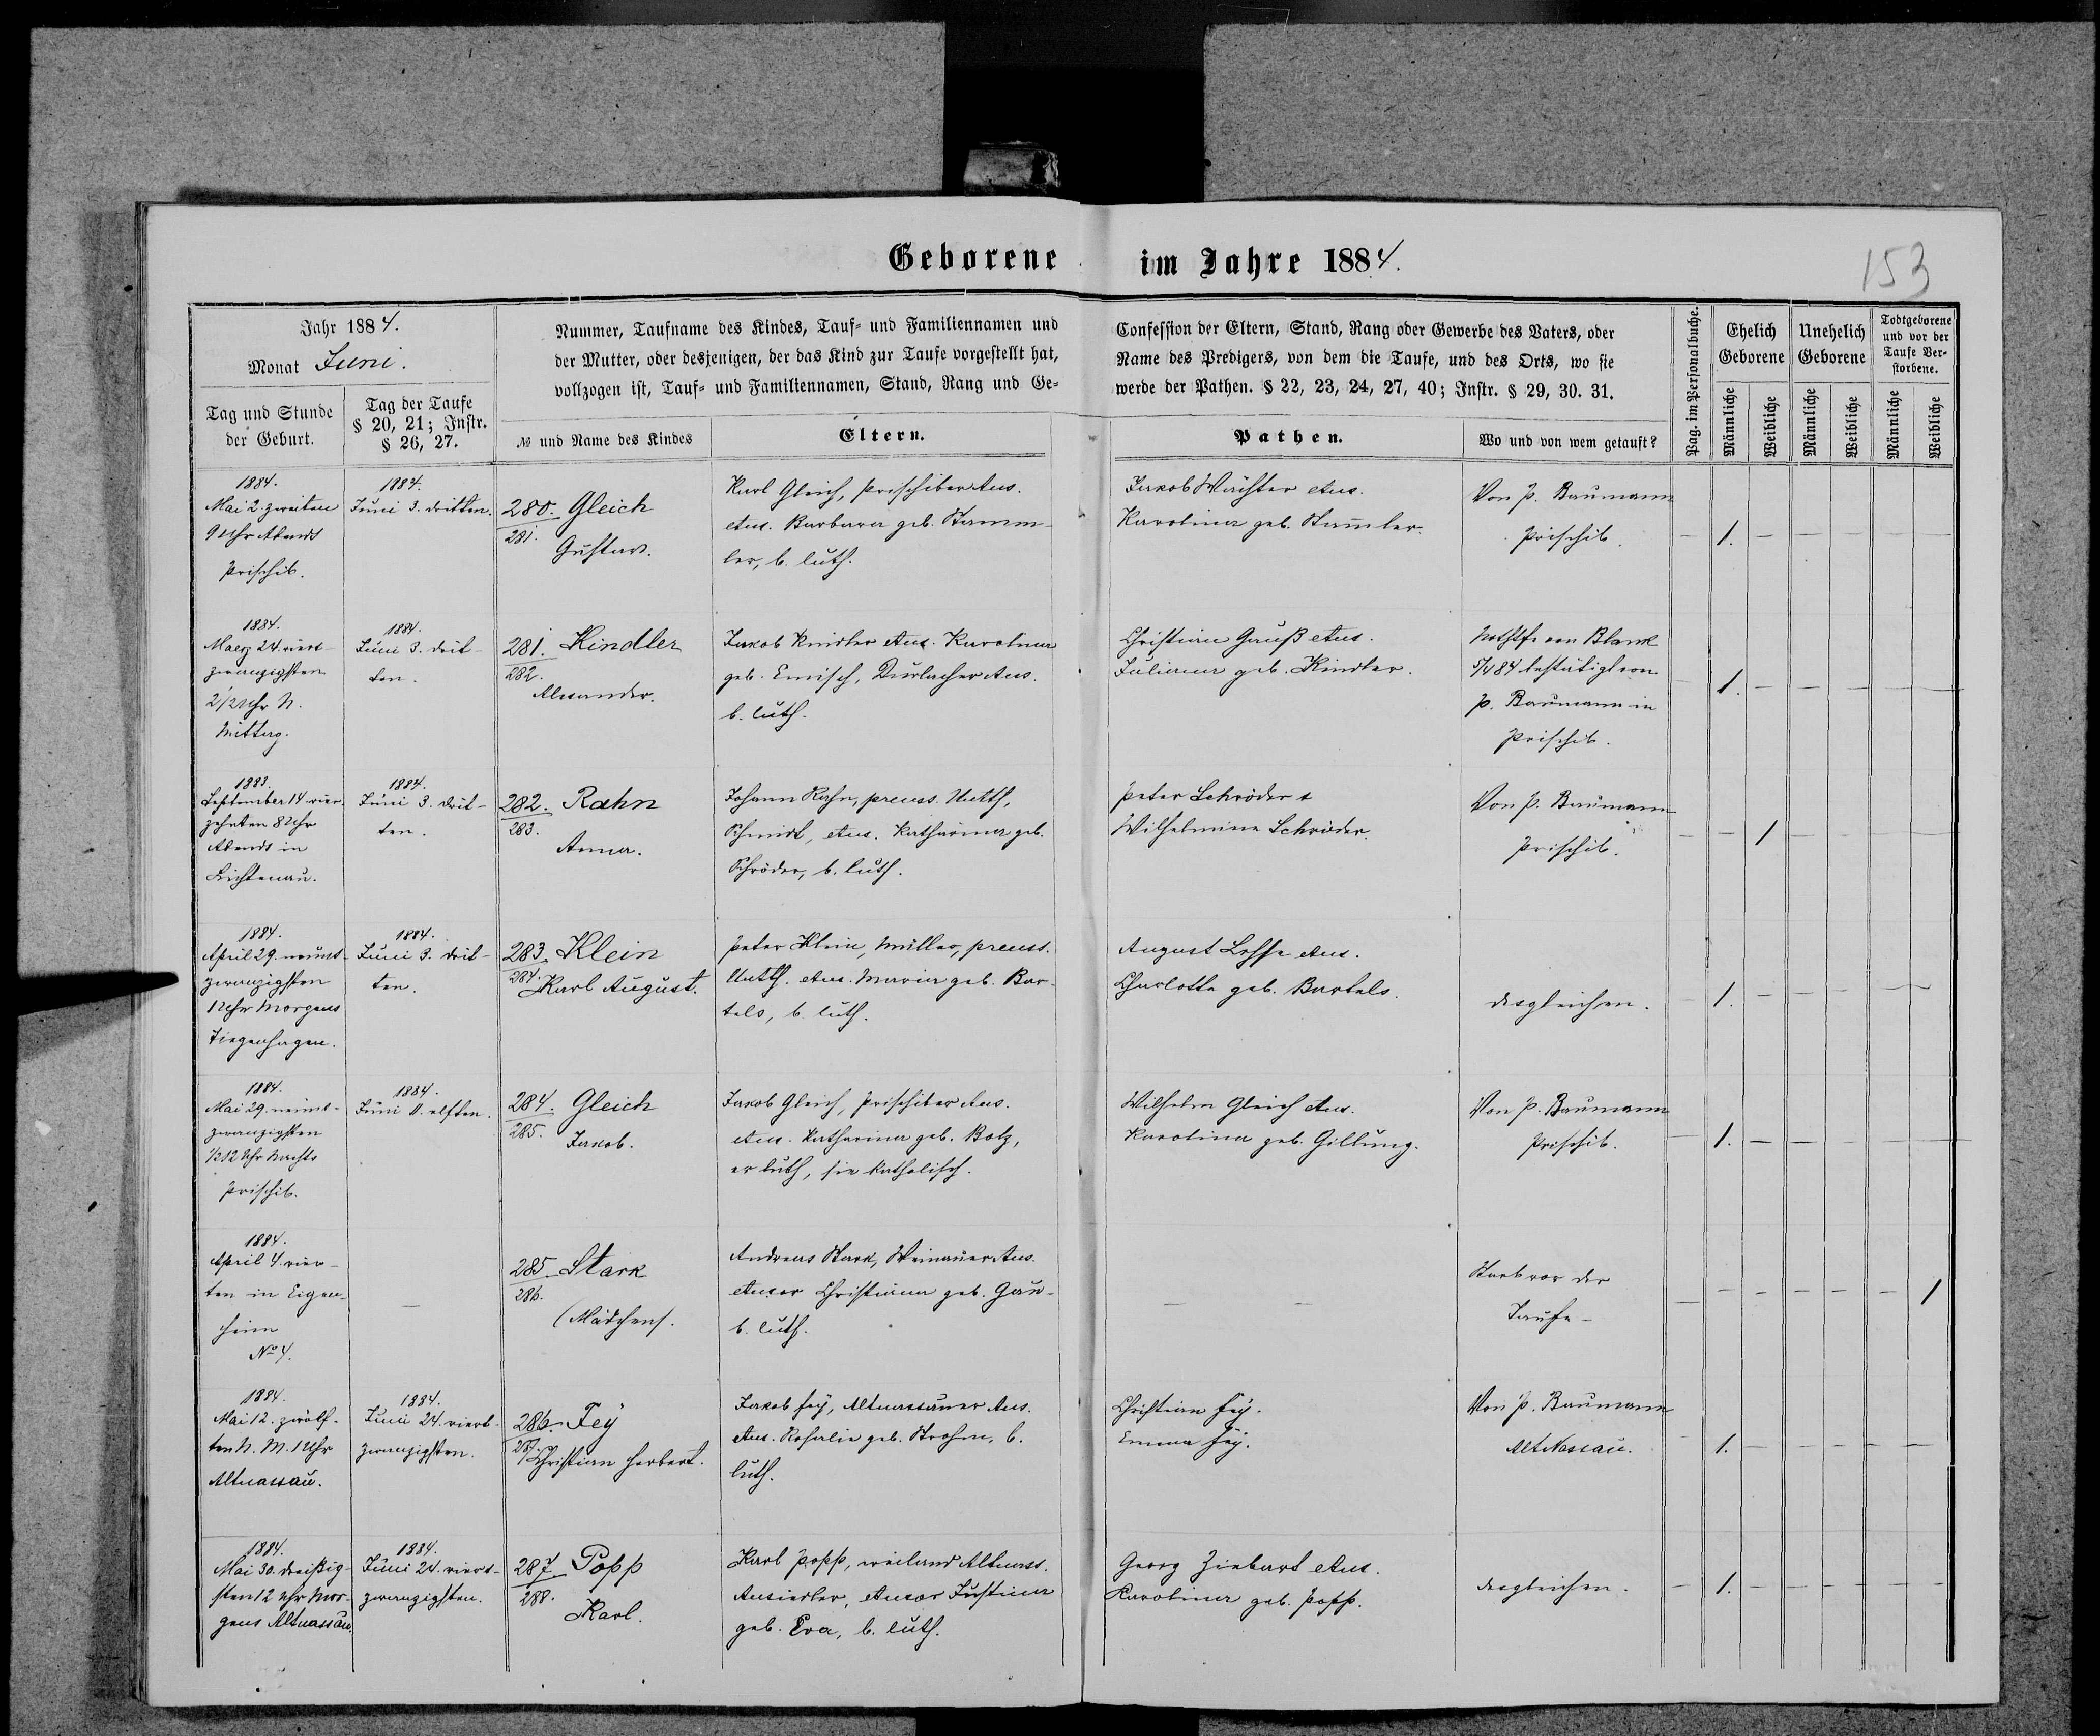 Geborene im Jahre 1884.
153
Jahr 1884.
Monat Juni.
Tag und Stunde
der Geburt.
Tag der Taufe
§ 20, 21; Instr.
§ 26, 27.
Nummer, Taufname des Kindes, Tauf- und Familiennamen und
der Mutter, oder desjenigen, der das Kind zur Taufe vorgestellt hat,
vollzogen ist, Tauf- und Familiennamen, Stand, Rang und Ge-
№ und Name des Kindes
Eltern.
Confession der Eltern, Stand, Rang oder Gewerbe des Vaters, oder
Name des Predigers, von dem die Taufe, und des Orts, wo sie
werbe der Pathen. § 22, 23, 24, 27, 40; Instr. § 29, 30. 31.
Pathen.
Wo und von wem getauft?
Pag. im Personalbuche.
Ehelich
Geborene
Unehelich
Geborene
Todtgeborene
und vor der
Taufe Ver-
storbene.
Männliche
Weibliche
Männliche
Weibliche
Männliche
Weibliche
1884.
Mai 2. zweiten
9 Uhr Abends
Prischib.
1884.
Juni 3. dritten.
280. Gleich
281.
Gustav.
Karl Gleich, Prischiber Ans.
Barbara geb. Stamm-
ler, b. luth.
Jakob Wächter
Karolina geb. Stamler.
Von P. Baumann
Prischib.
— 1. — — — — —
1884.
Maerz 24. viert-
zwanzigsten
2 1/2 Uhr N.
Mittag.
1884.
Juni 3. drit-
ten.
281. Kindler
282.
Alexander.
Jakob Kindler Ans. Karolina
geb. Emisch, Durlacher Ans.
b. luth.
Christian Gauß
Juliana geb. Kindler.
von Blank
5/4 84 bestätigt von
P. Baumann in
Prischib.
— 1. — — — — —
1883.
September 14. vier-
zehnten 8 Uhr
Abends in
Lichtenau.
1884.
Juni 3. drit-
ten.
282. Rahn
283.
Anna.
Johann Rahn, preuss. Unterth,
Schmidt, Katharina geb.
Schröder, b. luth.
Peter Schröder &
Wilhelmine Schröder.
Von P. Baumann
Prischib.
— — 1 — — — —
1884.
April 29. neunt-
zwanzigsten
1 Uhr Morgens
Tiegenhagen.
1884.
Juni 3. drit-
ten.
283. Klein
284.
Karl August.
Peter Klein, Müller, preuss.
Unterth. Maria geb. Bar-
tels, b. luth.
August
Charlotte geb. Bartels.
desgleichen.
— 1. — — — — —
1884.
Mai 29. neunt-
zwanzigsten
1/2 12 Uhr Nachts
Prischib.
1884.
Juni 11. elften.
284. Gleich
285.
Jakob.
Jakob Gleich, Prischiber Ans.
Katharina geb. Botz,
er luth, sie katholisch.
Wilhelm Gleich
Karolina geb. Gillung.
Von P. Baumann
Prischib.
— 1. — — — — —
1884.
April 4. vier-
ten in Eigen-
heim
No 4.
—
285. Stark
286.
(Mädchen).
Andreas Stark, Weinauer Ans.
Christiana geb. Gau-
b. luth.
— —
Starb vor der
Taufe —
— — — — — — 1
1884.
Mai 12. zwölf-
ten N. M. 1 Uhr
Altnassau.
1884.
Juni 24. viert-
zwanzigsten.
286. Fey
287.
Christian Herbert.
Jakob Fey, Altnassauer Ans.
Rosalie geb. Strohm, b.
luth.
Christian Fey.
Emma Fey.
Von P. Baumann
Alt Nassau.
— 1. — — — — —
1884.
Mai 30. dreißig-
sten 12 Uhr Mor-
gens Altnassau.
1884.
Juni 24. viert-
zwanzigsten.
287. Popp
288.
Karl.
Karl Popp, weiland Altnass.
Ansiedler, Justina
geb. Eva, b. luth.
Georg Ziebart
Karolina geb. Popp.
desgleichen.
— 1. — — — — —